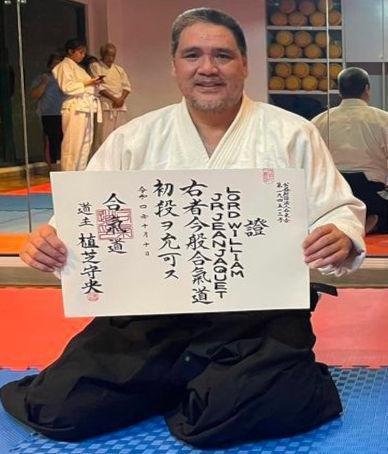 公益財団法人合氣会
證
LORD WILLIAM
JR JEAN JAQUET
右者今般合氣道
初段ヲ允可ス
令和四年十月十日
合氣道
道主 植芝守央